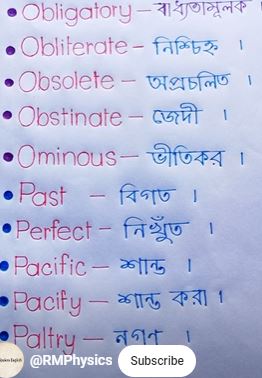 Obligatory – বাধ্যতামূলক
Obliterate – নিশ্চিহ্ন ।
Obsolete – অপ্রচলিত ।
Obstinate – জেদী ।
Ominous – ভীতিকর ।
Past – বিগত ।
Perfect – নিখুঁত ।
Pacific – শান্ত ।
Pacify – শান্ত করা ।
Paltry – নগণ্য ।
@RMPhysics Subscribe